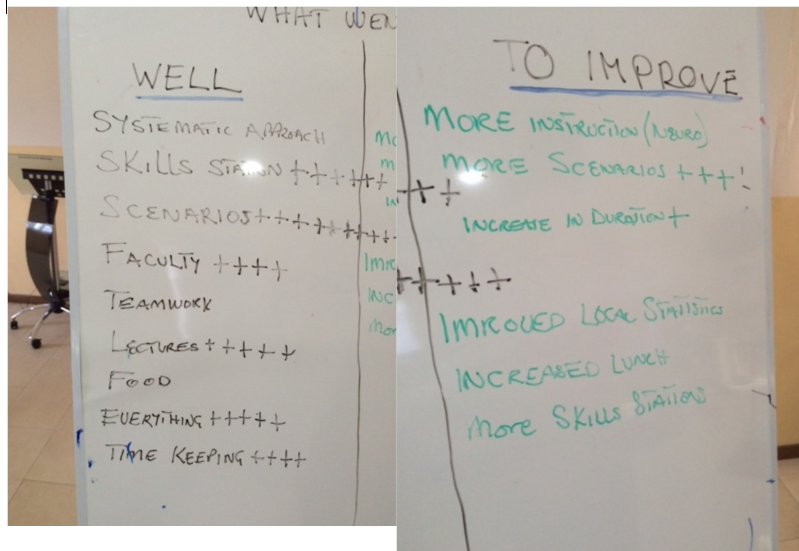 WHAT WEN
WELL
SYSTEMATIC APPROACH
SKILLS STATION +++++
SCENARIOS ++++++++++
FACULTY ++++
TEAMWORK
LECTURES +++++
FOOD
EVERYTHING +++++
TIME KEEPING ++++
TO IMPROVE
MORE INSTRUCTION (NEURO)
MORE SCENARIOS +++!
INCREASE IN DURATION +
IMROVED LOCAL STATISTICS
INCREASED LUNCH
More SKILLS STATIONS